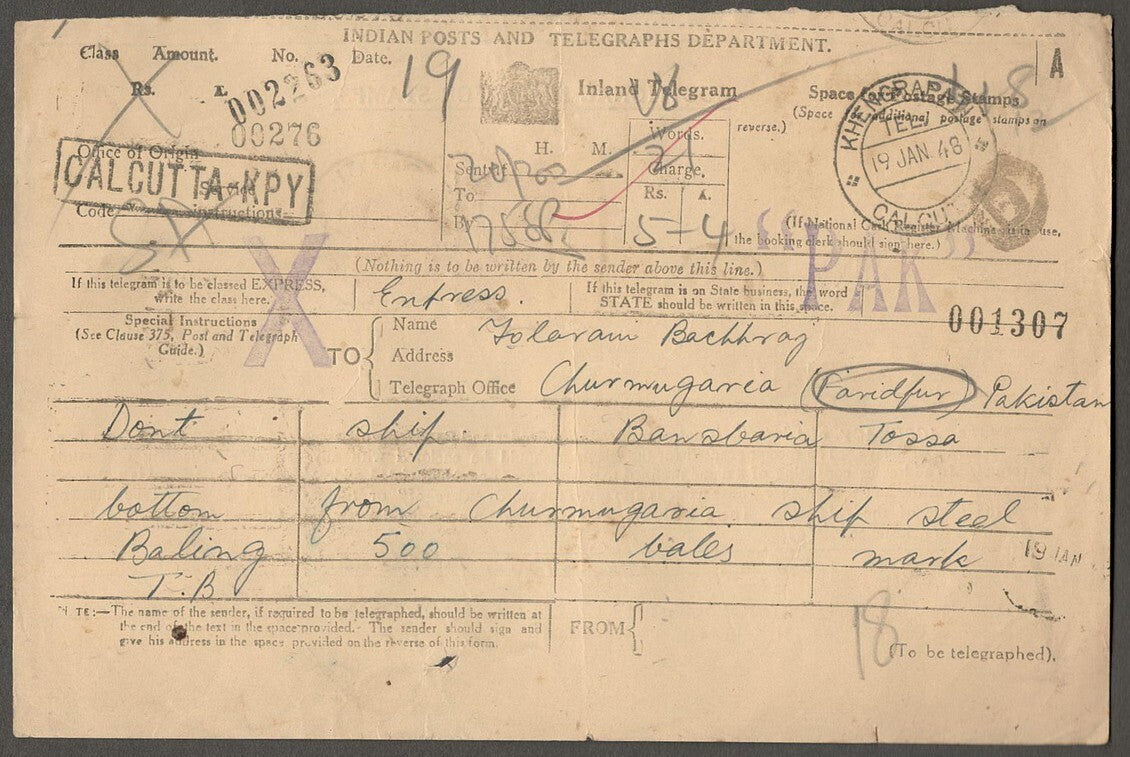 INDIAN POSTS AND TELEGRAPHS DEPARTMENT.
Class Amount. No. Date. 19
Rs. A. 002263
00276
A
Inland Telegram
Space for Postage Stamps
(Space for additional postage stamps on
reverse.)
KHENGRAPATTI
TEL.
19 JAN. 48
CALCUT
Office of Origin
CALCUTTA-KPY
Service
Code Instructions
H. M.
Sent
To
By
Words.
21
Charge.
Rs. A.
5-4
(If National Cash Register Machine is in use,
the booking clerk should sign here.)
(Nothing is to be written by the sender above this line.)
"PAK"
X
If this telegram is to be classed EXPRESS,
write the class here.
Express.
If this telegram is on State business, the word
STATE should be written in this space.
001307
Special Instructions
(See Clause 375, Post and Telegraph
Guide.)
TO
Name Tolaram Bachhraj
Address
Telegraph Office Churmugaria (Faridpur) Pakistan
Dont ship Bansbaria Tossa
bottom from Churmugaria ship steel
Baling 500 bales mark
19 JAN
T.B
NOTE:—The name of the sender, if required to be telegraphed, should be written at
the end of the text in the space provided. The sender should sign and
give his address in the space provided on the reverse of this form.
FROM
18
(To be telegraphed).